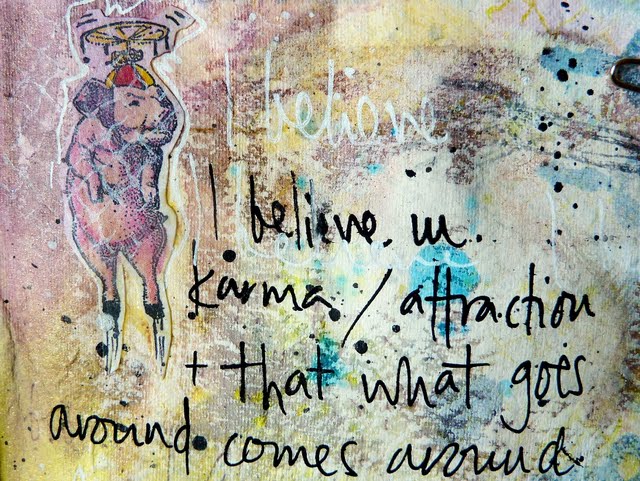 I believe
I believe in
karma / attraction
+ that what goes
around comes around.